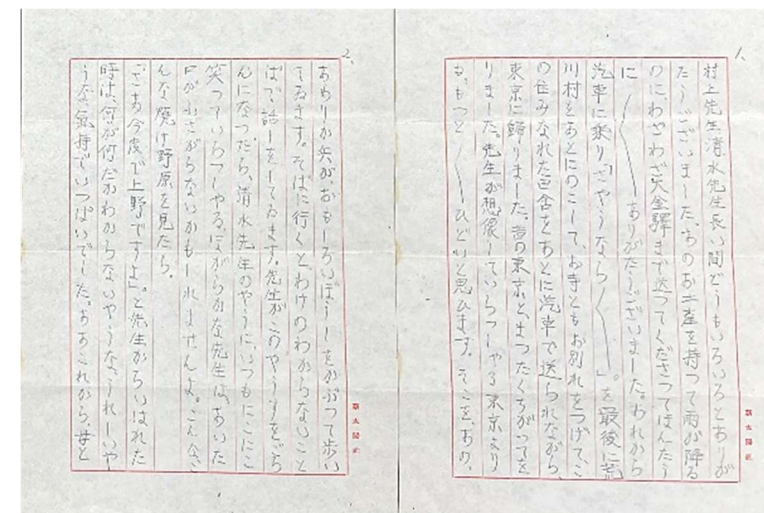 1、
村上先生清水先生長い間どうもいろいろとありが
たうございました。あのお土産を持つて雨が降る
のにわざわざ大金驛まで送つてくださつてほんたう
に〳〵ありがたうございました。われから
汽車に乗り「さやうなら〳〵。」を最後に荒
川村をあとにのこして、お寺ともお別れをつげてこ
の住みなれた田舎をあとに汽車で送られながら、
東京に歸りました。昔の東京とまつたくちがつてを
りました。先生が想像していらつしやる東京より
も、もつと〳〵ひどいと思ひます。そこを、あの、
2、
あめりか兵が、おもしろいぼうしをかぶつて歩い
てゐます。そばに行くと、わけのわからないこと
ばで、話しをしてゐます。先生がこのやうすをごら
んになつたら、清水先生のやうに、いつもにこにこ
笑つていらつしやるほがらかな先生は、あいた
口がふさがらないかもしれませんよ。こんなこ
んな焼け野原を見たら。
「さあ今度で上野ですよ」。と先生がいはれた
時は、何が何だかわからないやうな、うれしいや
うな氣持でいつぱいでした。ああこれから、母と